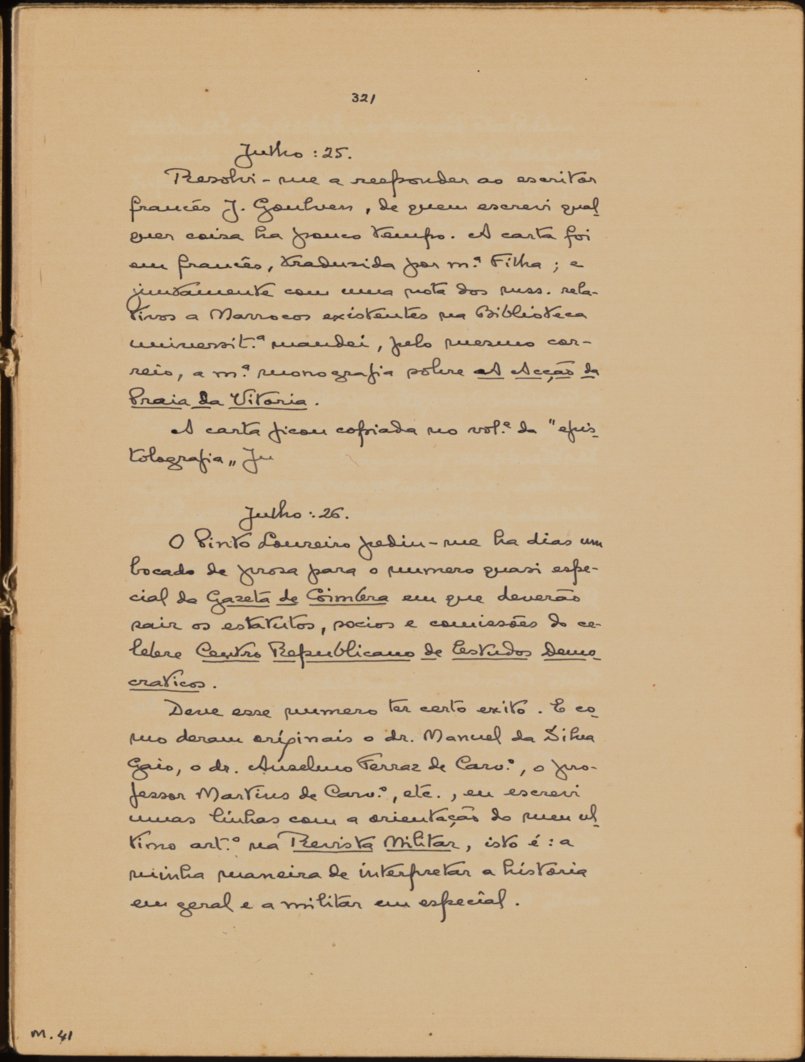 321
Julho : 25.
Resolvi-me a responder ao escritor
francês J. Goulven, de quem escrevi qual
quer coisa ha pouco tempo. A carta foi
em francês, traduzida por m.ª Filha ; e
juntamente com uma nota dos mss. rela-
tivos a Marrocos existentes na Biblioteca
universit.ª mandei, pelo mesmo cor-
reio, a m.ª monografia sobre A Acção da
Praia da Vitoria.
A carta ficou copiada no vol.º da "epis-
tolografia„ Ju
Julho : 26.
O Pinto Loureiro pediu-me ha dias um
bocado de prosa para o numero quasi espe-
cial da Gazeta de Coimbra em que deverão
sair os estatutos, socios e comissões do ce-
lebre Centro Republicano de Estudos Demo-
craticos.
Deve esse numero ter certo exito. E co-
mo deram originais o dr. Manuel da Silva
Gaio, o dr. Anselmo Ferraz de Carv.º, o pro-
fessor Martins de Carv.º, etc., eu escrevi
umas linhas com a orientação do meu ul-
timo art.º na Revista Militar, isto é : a
minha maneira de interpretar a história
em geral e a militar em especial.
M. 41